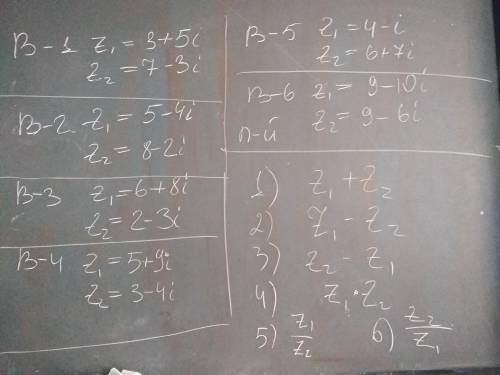 В-1 z₁ = 3+5i
z₂ = 7-3i
В-2 z₁ = 5-4i
z₂ = 8-2i
В-3 z₁ = 6+8i
z₂ = 2-3i
В-4 z₁ = 5+9i
z₂ = 3-4i
В-5 z₁ = 4-i
z₂ = 6+7i
В-6 z₁ = 9-10i
п-й z₂ = 9-6i
1) z₁ + z₂
2) z₁ - z₂
3) z₂ - z₁
4) z₁ · z₂
5) z₁/z₂ 6) z₂/z₁